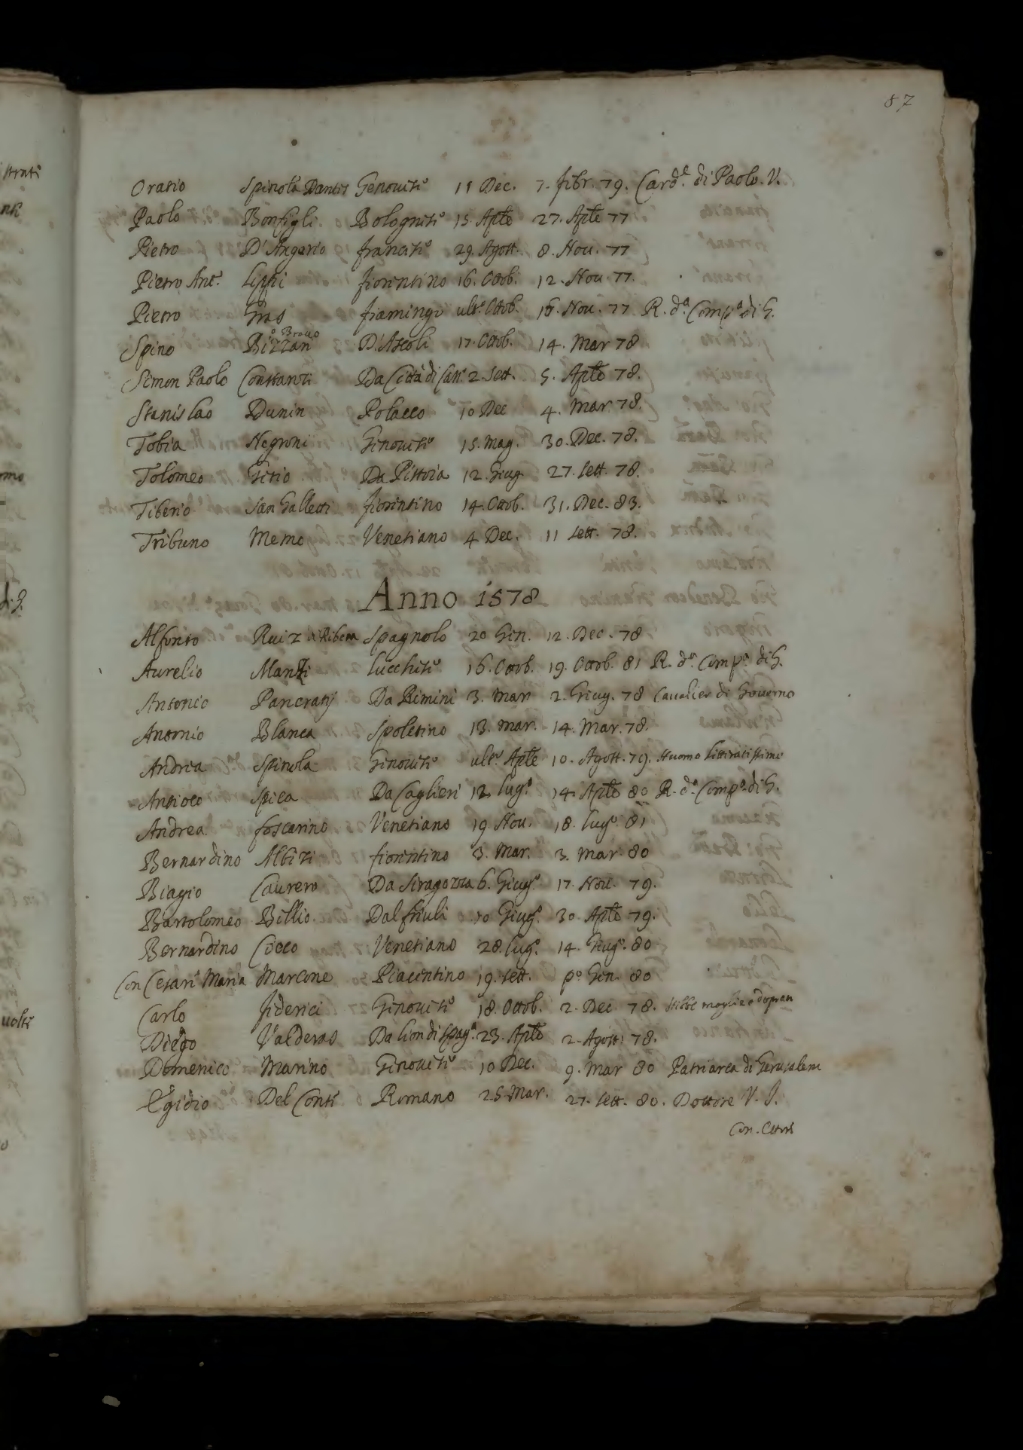 87
Oratio Spinola Genovese 11 Dec. 7. febr. 79. Card.e di Paolo V.
Paolo Bonfigli Bolognese 15. Aple 27. Aple 77
Pietro D'Angerio francese 29. Agost. 8. Nov. 77
Pietro Ant.o Lippi fiorentino 16. Ottob. 12. Nov. 77.
Pietro framingo ult.o Ottob. 16. Nov. 77 R. d.a Comp.a di G.
Spino D'Ascoli 17. Ottob. 14. Mar 78
Simon Paolo Costanti Da Città di Cast. 2. Sett. 5. Aple 78.
Stanislao Dunin Polacco 10 Dec 4. Mar. 78.
Tobia Negroni Genovese 15. Mag. 30. Dec. 78.
Tolomeo Da Pistoia 12. Giug. 27. Sett. 78.
Tiberio San Galletti fiorentino 14. Ottob. 31. Dec. 83.
Tribuno Memo Venetiano 4. Dec. 11 Sett. 78.
Anno 1578
Alfonso Ruiz Ribera Spagnolo 20 Gen. 12. Dec. 78
Aurelio Manzi Lucchese 16. Ottob. 19. Ottob. 81 R. d.a Comp.a di G.
Antonio Pancratij Da Rimini 3. Mar 2. Giug. 78 Cavalier di Governo
Antonio Blanca Spoletino 13. Mar. 14. Mar. 78.
Andrea Spinola Genovese ult.o Aple 10. Agost. 79. Huomo litteratissimo
Antioco Spica Da Caglieri 12. Lug.o 14. Aple 80 R. d.a Comp.a di G.
Andrea foscarino Venetiano 19. Nov. 18. Lug.o 81
Bernardino Albizi fiorentino 3. Mar. 3. Mar 80
Biagio Caurero Da Siragozza 6. Giug.o 17. Nov. 79.
Bartolomeo Billio. Dal friuli 10 Giug.o 30. Aple 79.
Bernardino Cioco Venetiano 28. Lug.o 14. Giug.o 80
Con Cesare Maria Marcone Piacentino 19. Sett. p.o Gen. 80
Carlo fiderici Genovese 18. Ottob. 2. Dec 78. moglie
Diego Valderas Da Lion di Spag.a 23. Aple 2. Agost. 78.
Domenico Marino Genovese 10 Dec. 9. Mar 80 Patriarca di Gerusalem
Egidio Del Conte Romano 25. Mar. 27. Sett. 80. Dottore V. J.
Con.